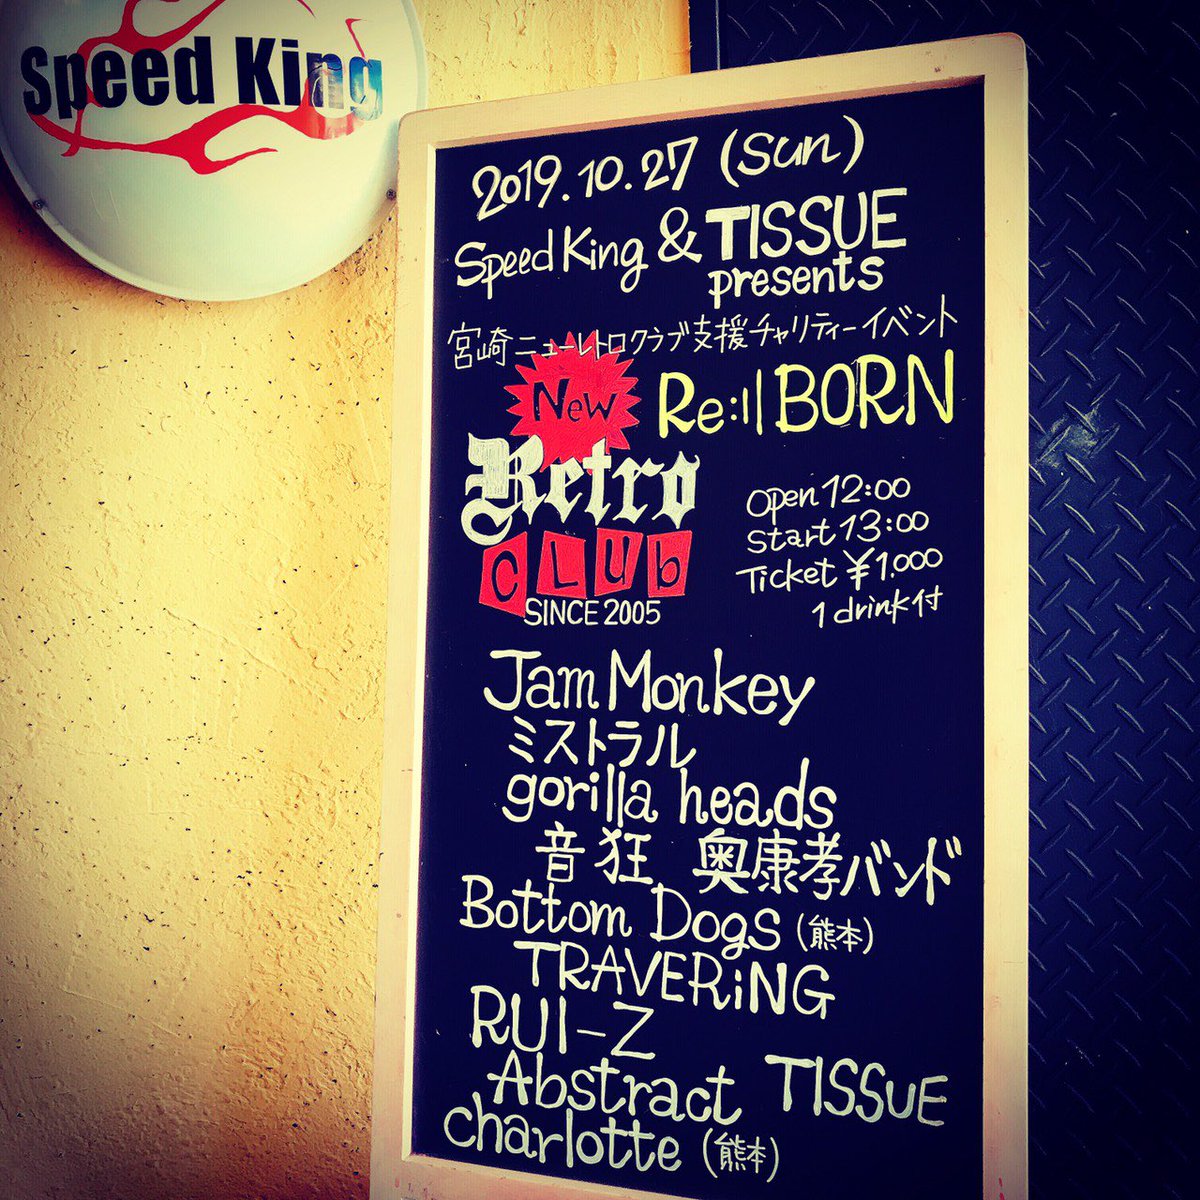 Speed King
2019.10.27 (Sun)
Speed King & TISSUE
presents
宮崎ニューレトロクラブ支援チャリティーイベント
New
Re:|| BORN
Retro
CLUb
SINCE 2005
Open 12:00
Start 13:00
Ticket ¥1.000
1 drink付
Jam Monkey
ミストラル
gorilla heads
音狂 奥康孝バンド
Bottom Dogs (熊本)
TRAVERiNG
RUI-Z
Abstract TISSUE
charlotte (熊本)